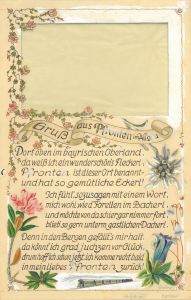 Gruß aus Pfronten-Allg.
Dort oben im bayrischen Oberland,
da weiß ich ein wunderschön's Fleckerl.
Pfronten ist dieser Ort benannt-
und hat so gemütliche Eckerl!
Ich fühl', sozusagen mit einem Wort,
mich wohl, wie d' Forellen im Bacherl.
und möchte von da schier gar nimmer fort,
blieb so gern unterm gastlichen Dacherl.
Denn in den Bergen gefällt's mir halt,
da könnt' ich grad juchzen vor Glück,
drum hoff' ich sehr, jetzt ich komme recht bald
in mein liebes Pfronten zurück!